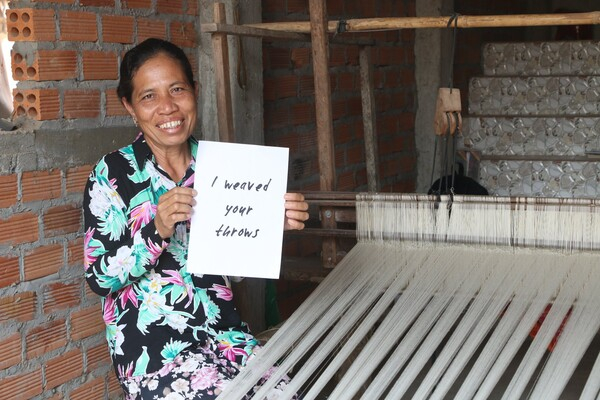 I weaved
your
throws